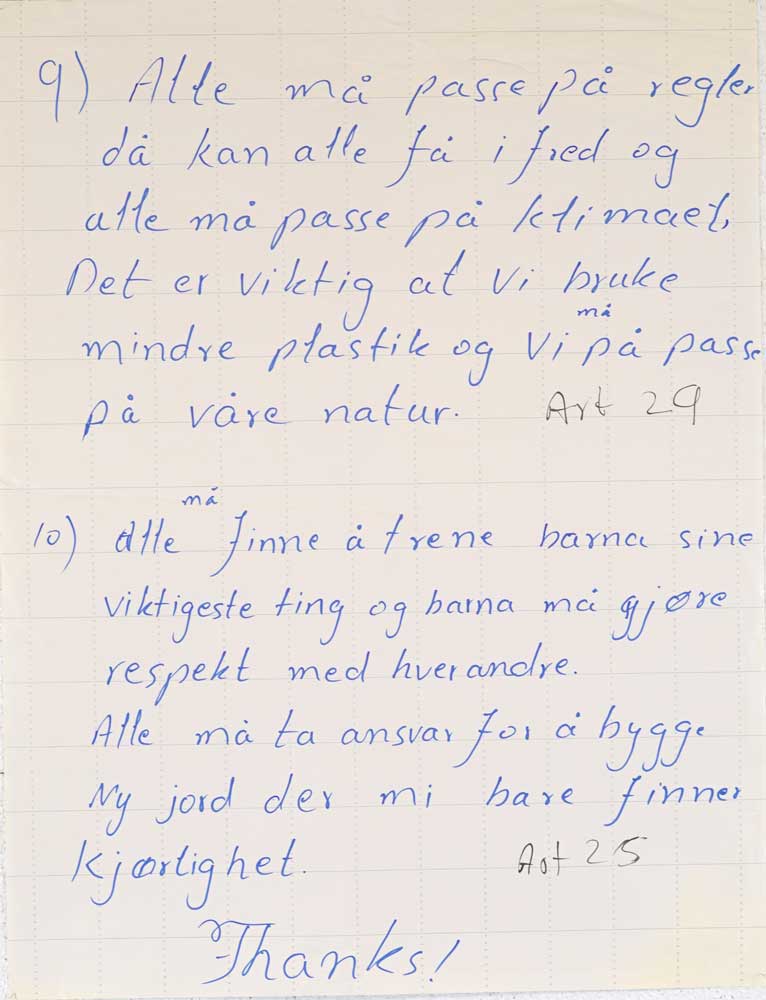 9) Alle må passe på regler
då kan alle få i fred og
alle må passe på klimaet,
Det er viktig at vi bruke
må
mindre plastik og vi på passe
på våre natur. Art 29
må
10) alle finne å trene barna sine
viktigeste ting og barna må gjøre
respekt med hverandre.
Alle må ta ansvar for å bygge
Ny jord der mi bare finner
kjørlighet. Art 25
Thanks!